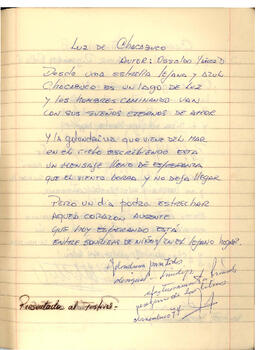 LUZ DE CHACABUCO
AUTOR: OSVALDO YAÑEZ D
DESDE UNA ESTRELLA LEJANA Y AZUL
CHACABUCO ES UN LAGO DE LUZ
Y LOS HOMBRES CAMINANDO VAN
CON SUS SUEÑOS ETERNOS DE AMOR
Y LA GOLONDRINA QUE VIENE DEL MAR
EN EL CIELO ESCRIBIENDO ESTÁ
UN MENSAJE LLENO DE ESPERANZA
QUE EL VIENTO BORRA Y NO DEJA LLEGAR
PERO UN DÍA PODRÁ ESTRECHAR
AQUEL CORAZÓN AUSENTE
QUE HOY ESPERANDO ESTÁ
ENTRE SONRISAS DE NIÑOS EN EL LEJANO HOGAR.
Presentada al Festival